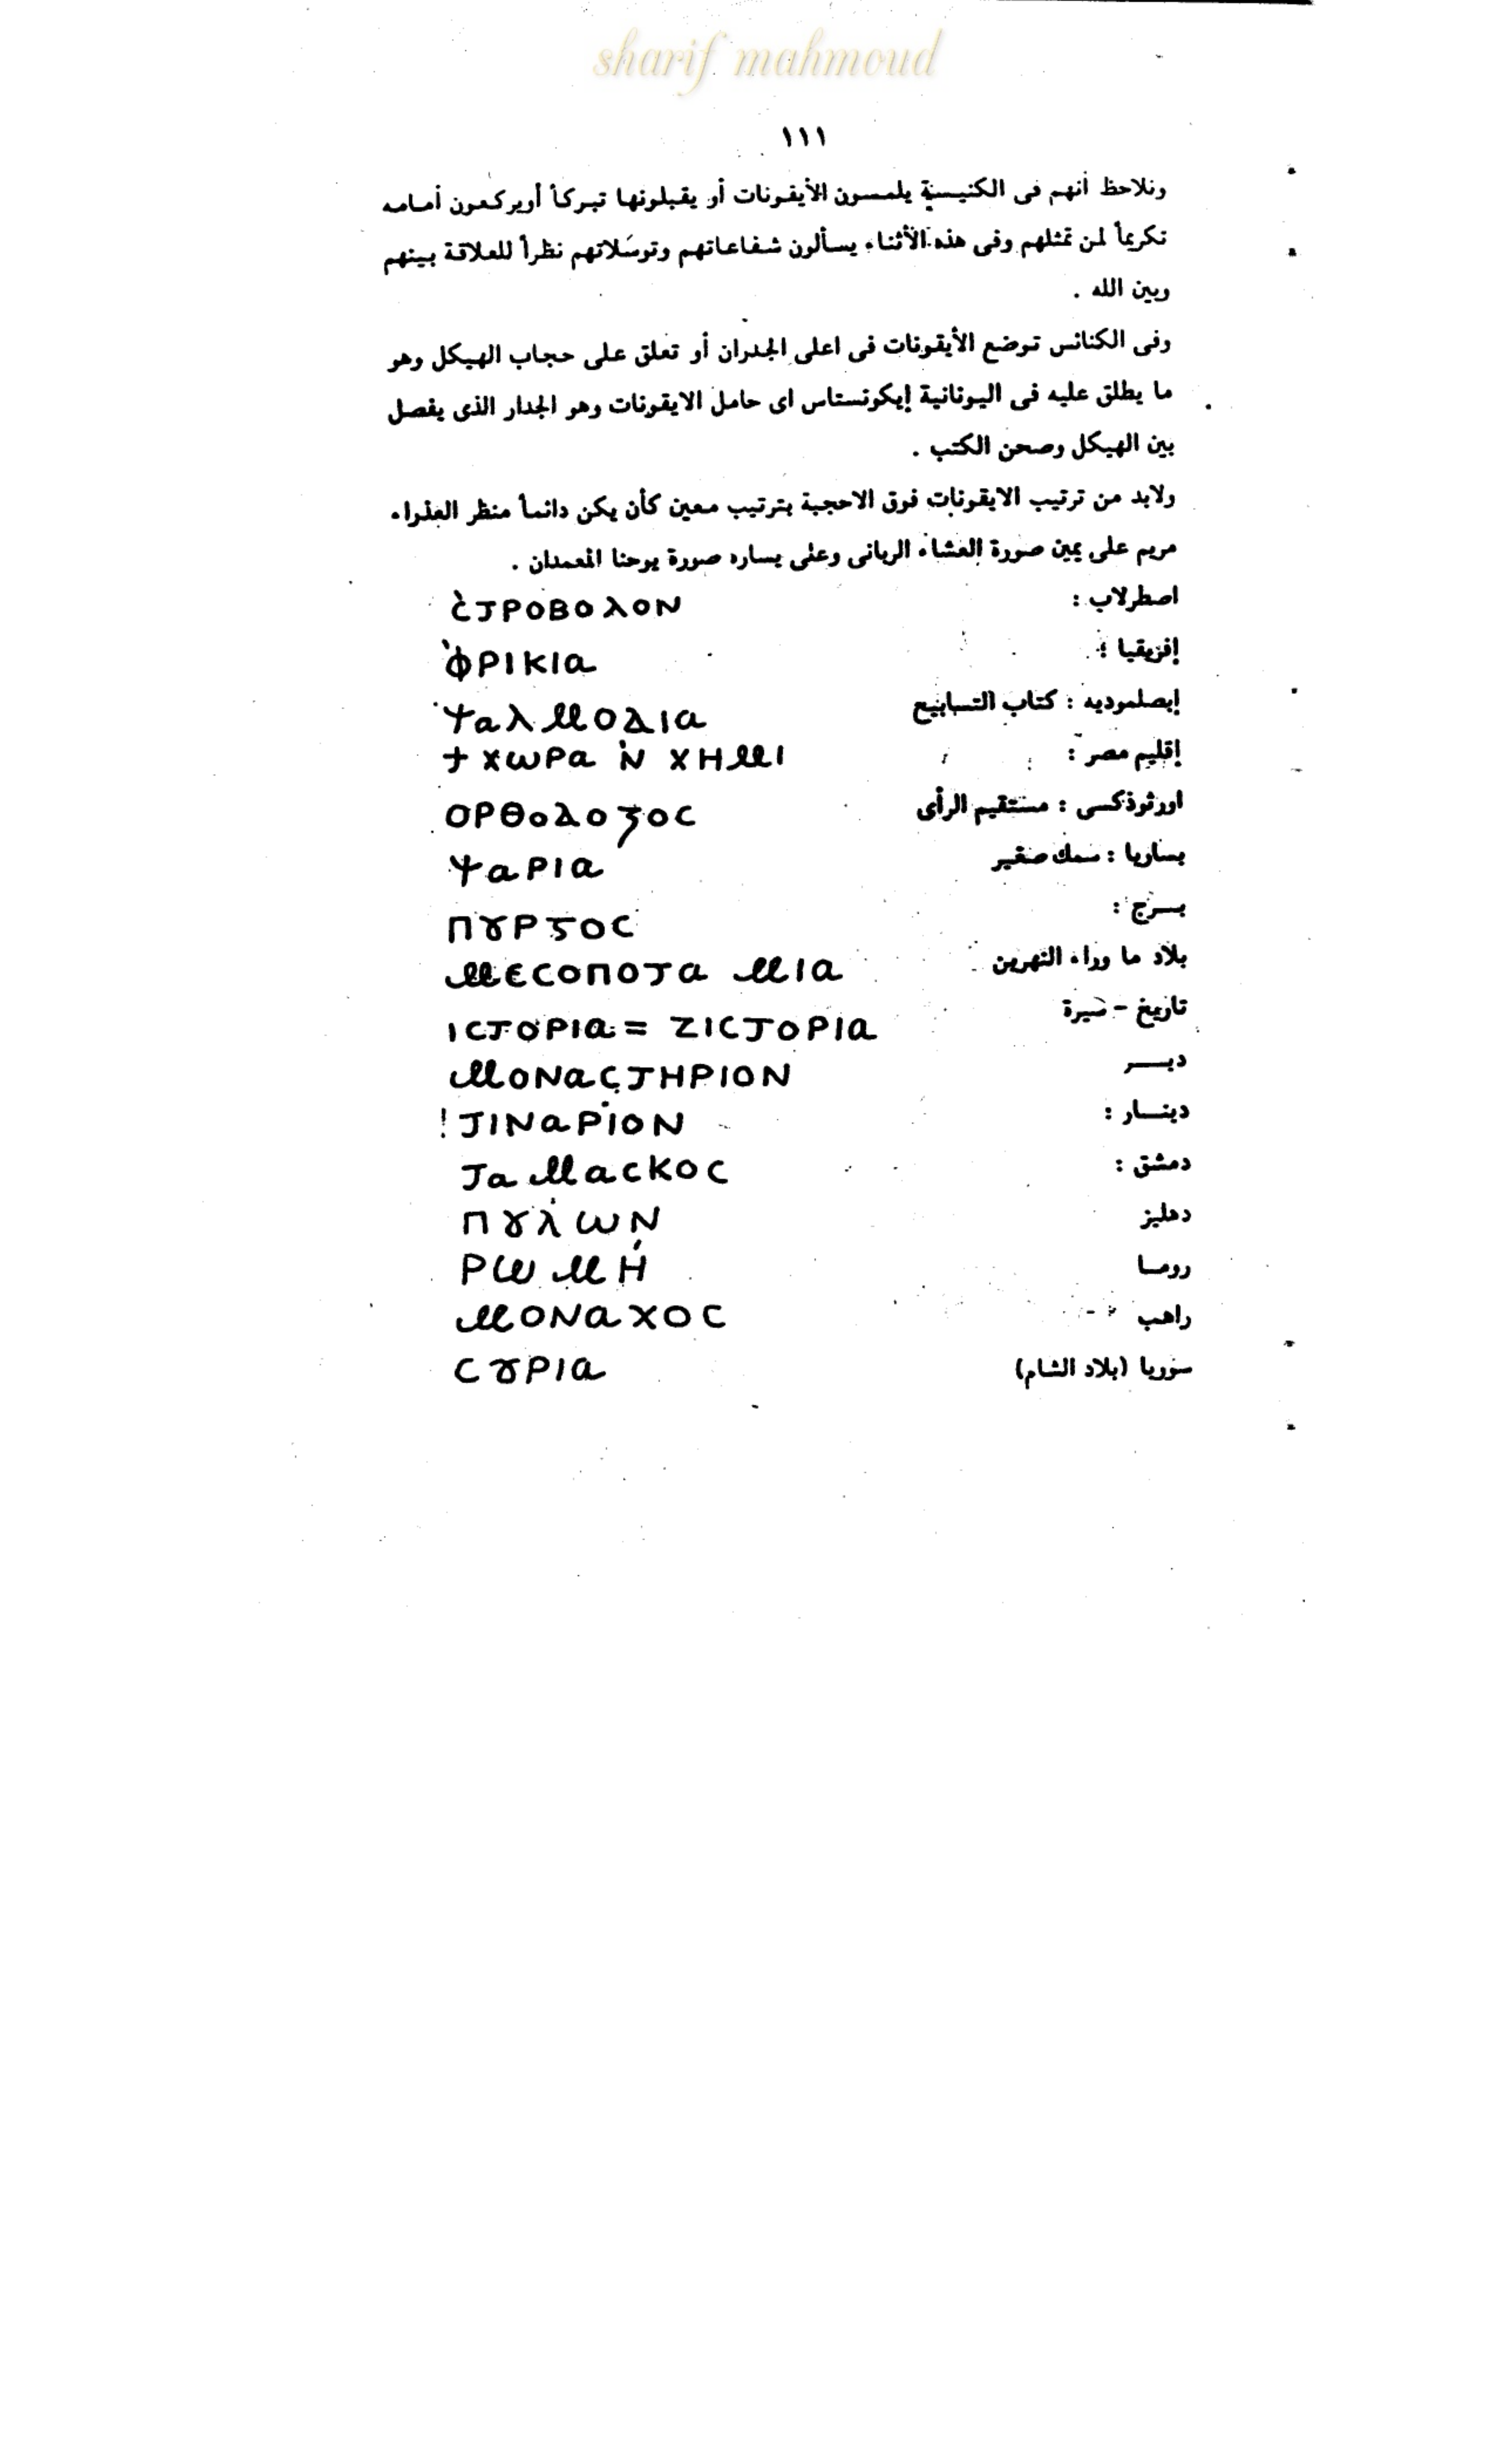 sharif mahmoud
١١١
ونلاحظ أنهم فى الكنيسة يلمسون الأيقونات أو يقبلونها تبركأ أويركعون أمامه
تكريمأ لمن تمثلهم وفى هذه الأثناء يسألون شفاعاتهم وتوسلاتهم نظرأ للعلاقة بينهم
وبين الله .
وفى الكنائس توضع الأيقونات فى اعلى الجدران أو تعلق على حجاب الهيكل وهو
ما يطلق عليه فى اليونانية إيكونستاس اى حامل الايقونات وهو الجدار الذى يفصل
بين الهيكل وصحن الكتب .
ولابد من ترتيب الايقونات فوق الاحجبة بترتيب معين كأن يكن دائمأ منظر العذراء
مريم على يمين صورة العشاء الربانى وعلى يساره صورة يوحنا المعمدان .
اصطرلاب : Ⲥ̀ⲦⲢⲞⲂⲞⲖⲞⲚ
إفريقيا : ⲪⲢⲒⲔⲒⲀ
إبصلموديه : كتاب التسابيع ⲮⲀⲖⲘⲞⲆⲒⲀ
إقليم مصر : ϮⲬⲰⲢⲀ Ⲛ̀ ⲬⲎⲘⲒ
اورثوذكسى : مستقيم الرأى ⲞⲢⲐⲞⲆⲞⲜⲞⲤ
بساريا : سمك صغير ⲮⲀⲢⲒⲀ
بسرج : ⲠⲨⲢⲊⲞⲤ
بلاد ما وراء النهرين ⲘⲈⲤⲞⲠⲞⲦⲀ ⲘⲒⲀ
تاريخ - سيرة ⲒⲤⲦⲞⲢⲒⲀ = ⲌⲒⲤⲦⲞⲢⲒⲀ
ديـر ⲘⲞⲚⲀⲤⲦⲎⲢⲒⲞⲚ
دينـار : ⲦⲒⲚⲀⲢⲒⲞⲚ
دمشق : ⲦⲀⲘⲀⲤⲔⲞⲤ
دهليز ⲠⲨⲖⲰⲚ
رومـا ⲢⲰⲘⲎ̀
راهب ⲘⲞⲚⲀⲬⲞⲤ
سوريا (بلاد الشام) ⲤⲨⲢⲒⲀ